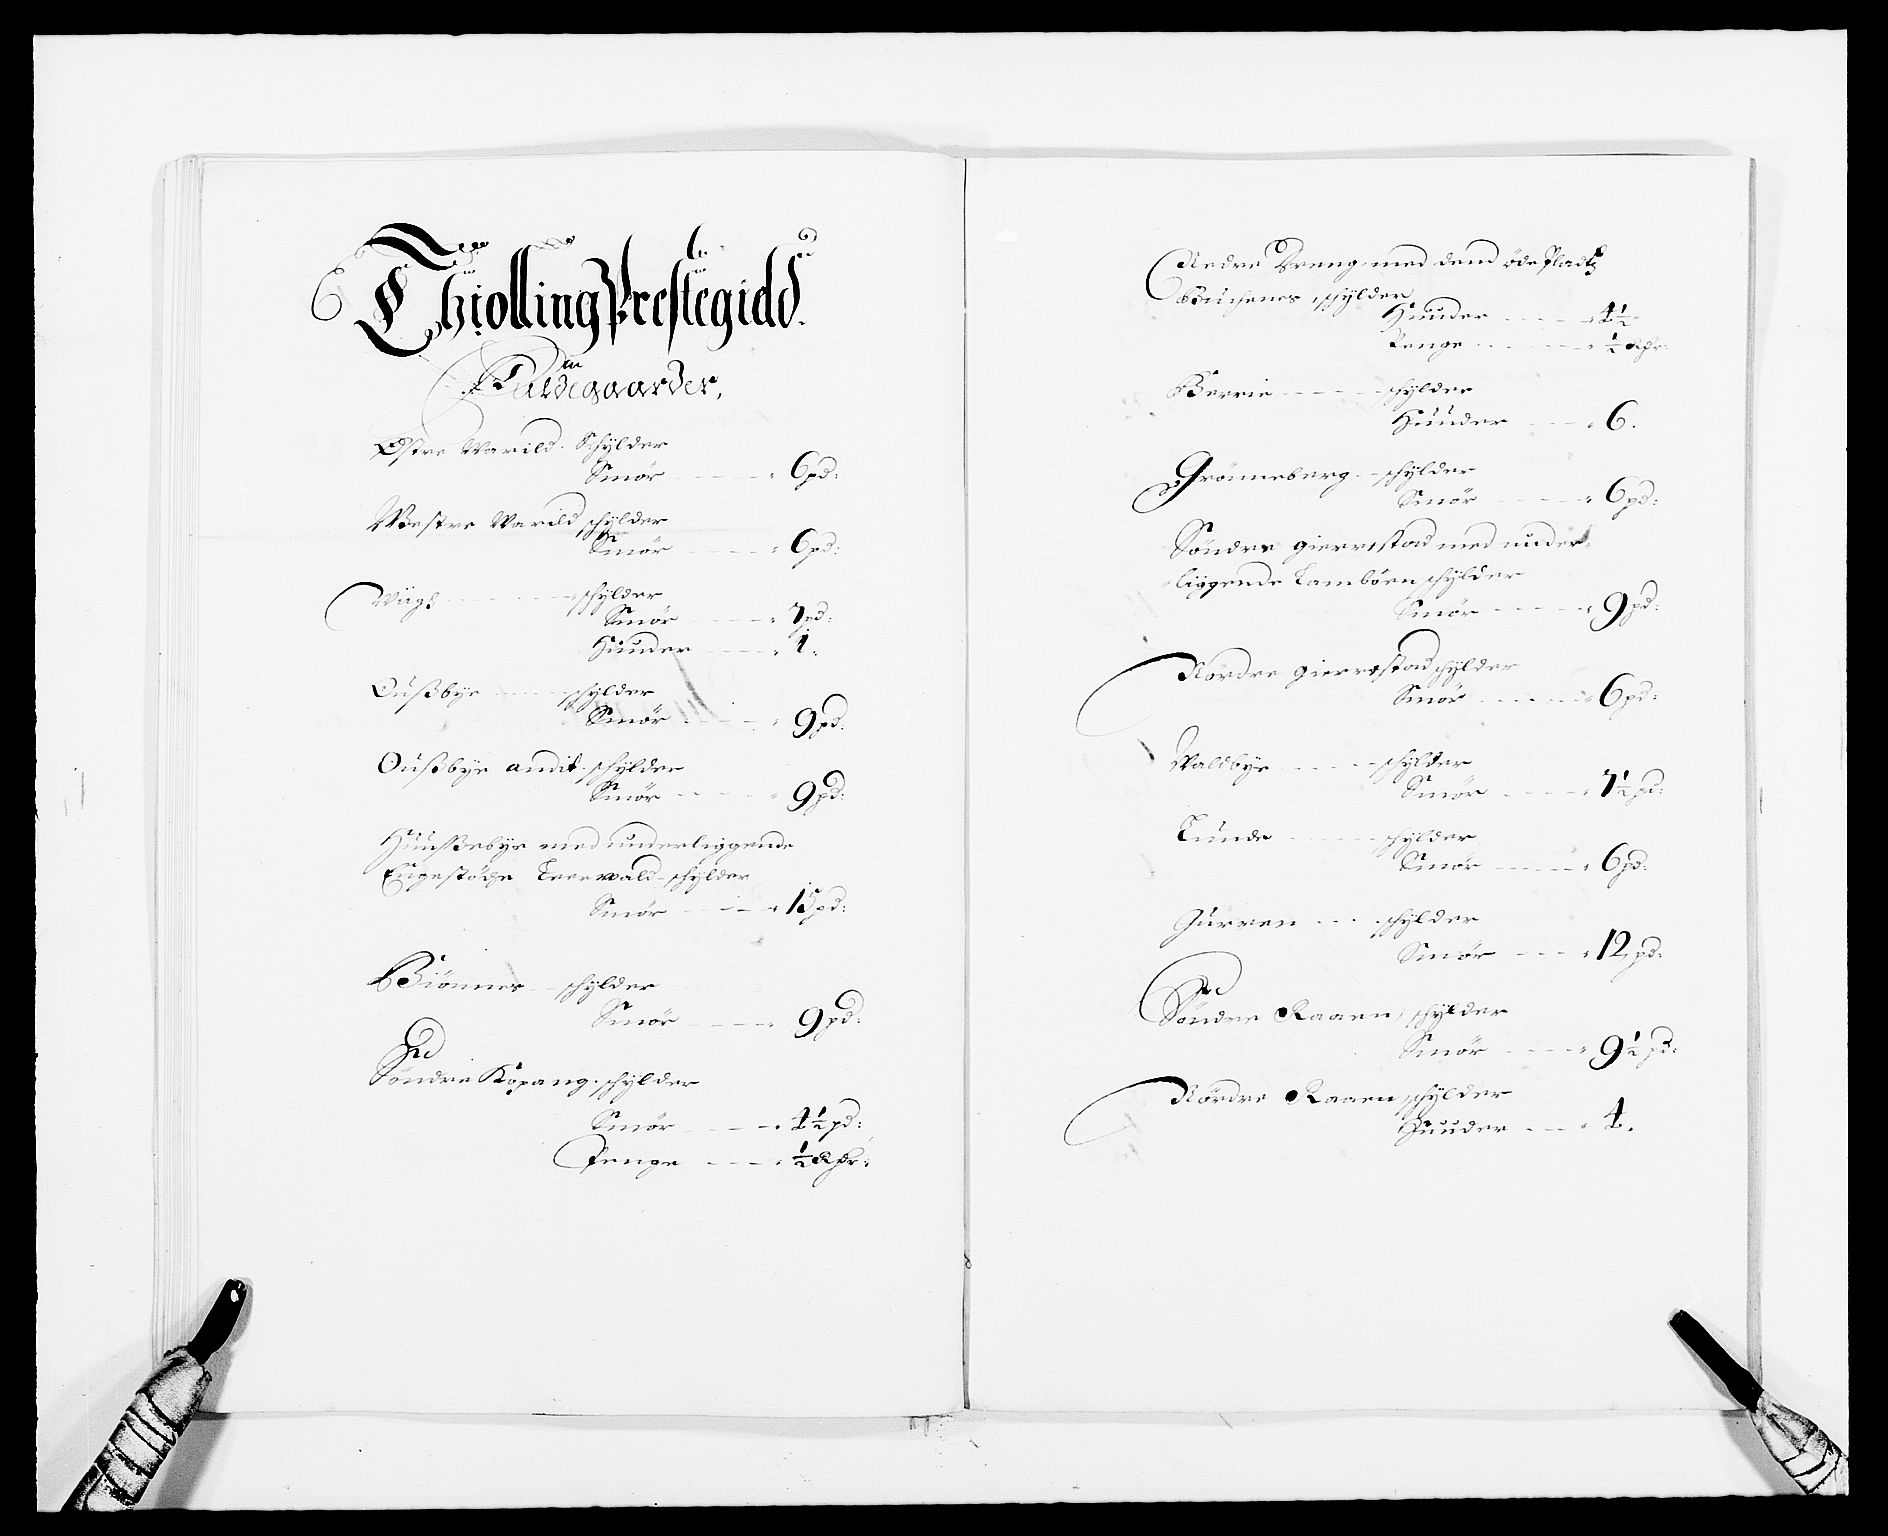 Thiolling Prestegield.
Fuldegaarder,
Østre Warild. Schylder
Smör - - - - 6 pd:
Westre Warild schylder
Smör - - - - 6 pd:
Wiigh - - - - schylder
Smör - - - - 7 pd:
Huuder - - - - 1.
Oußbye - - - - schylder
Smör - - - - 9 pd:
Oußbye andit. schylder
Smör - - - - 9 pd:
Huußebye med underliggende
Engestöche Leerwald schylder
Smör - - - - 15 pd:
Biönnes - - schylder
Smör - - - - 9 pd:
Söndre Kopang. schylder
Smör - - - - 4½ pd:
Penge - - - ½ Rdr:
Nedre Vreng med dend öde Pladtz
Buchenes schylder
Huuder - - - - 4½
Penge - - - - ½ Rdr:
Berrie - - - - schylder
Huuder - - - 6.
Grönneberg - - schylder
Smör - - - - 6 pd:
Söndre gierrestad med under
liggende Lamböen schylder
Smör - - - - 9 pd:
Nördre gierrestad schylder
Smör - - - - 6 pd:
Waldbye - - - - schylder
Smör - - - - 7½ pd:
Lunde - - - - schylder
Smör - - - - 6 pd:
Gurren - - - schylder
Smör - - - 12 pd:
Söndre Raaen schylder
Smör - - - - 9½ pd:
Nördre Raaen schylder
Huuder - - - 4.